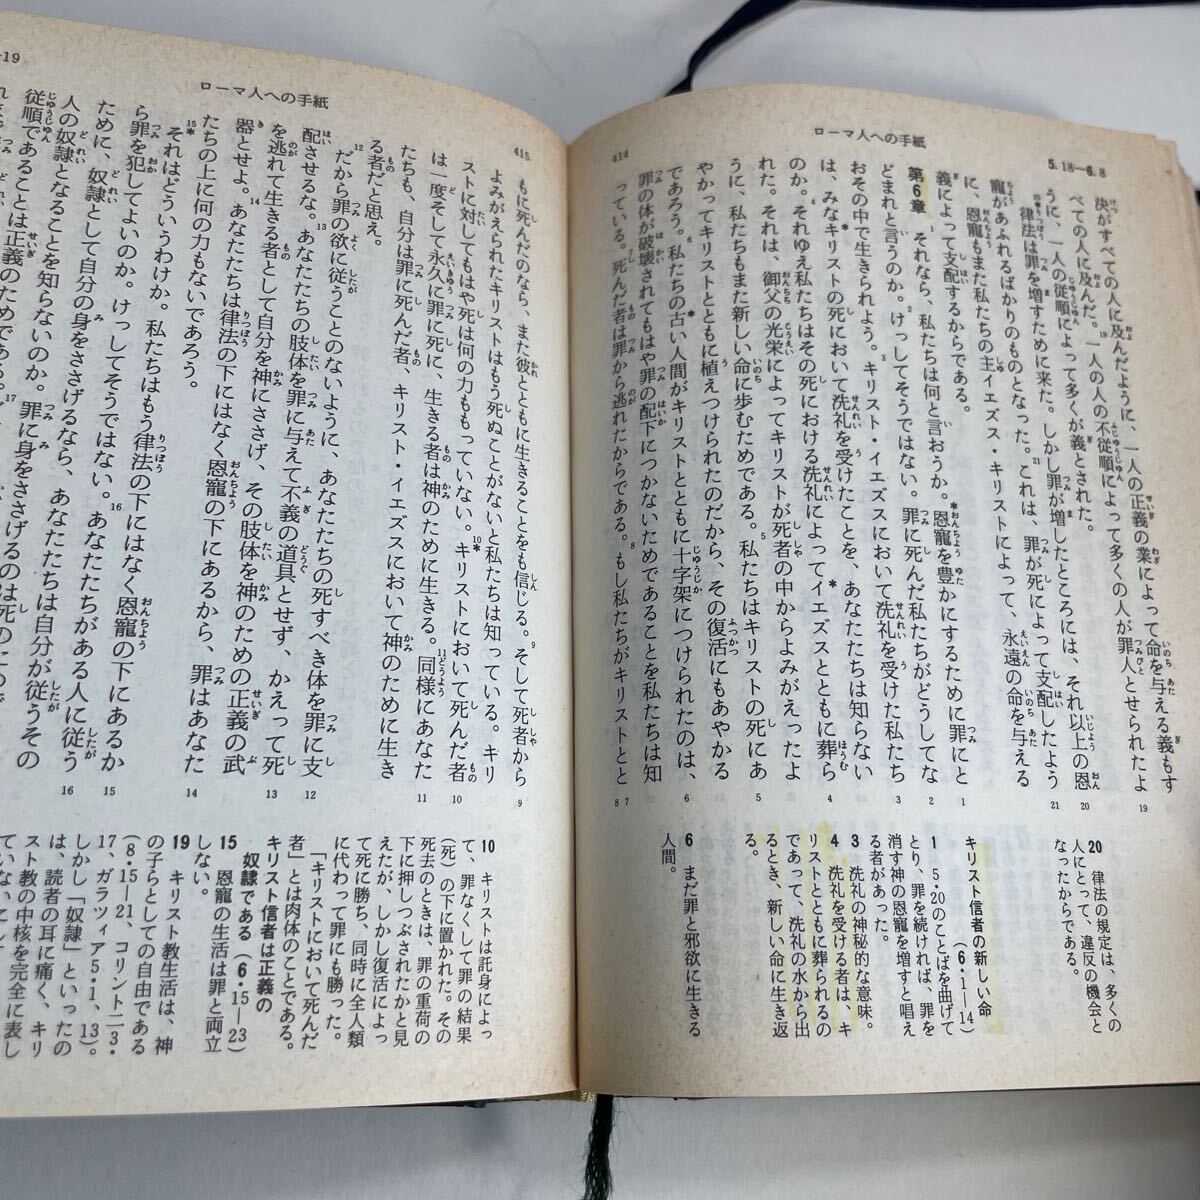 ローマ人への手紙
5.18—6.8
414
決がすべての人に及んだように、一人の正義の業によって命を与える義もす
べての人に及んだ。19一人の人の不従順によって多くの人が罪人とせられたよ
うに、一人の従順によって多くが義とされた。
20*律法は罪を増すために来た。しかし罪が増したところには、それ以上の恩
寵があふれるばかりのものとなった。21これは、罪が死によって支配したよう
に、恩寵もまた私たちの主イエズス・キリストによって、永遠の命を与える
義によって支配するからである。
第6章 1それなら、私たちは何と言おうか。*恩寵を豊かにするために罪にと
どまれと言うのか。2けっしてそうではない。罪に死んだ私たちがどうしてな
おその中で生きられよう。3キリスト・イエズスにおいて洗礼を受けた私たち
は、みな*キリストの死において洗礼を受けたことを、あなたたちは知らない
のか。4それゆえ私たちはその死における洗礼によって*イエズスとともに葬ら
れた。それは、御父の光栄によってキリストが死者の中からよみがえったよ
うに、私たちもまた新しい命に歩むためである。5私たちはキリストの死にあ
やかってキリストとともに植えつけられたのだから、その復活にもあやかる
であろう。6私たちの古い*人間がキリストとともに十字架につけられたのは、
罪の体が破壊されてもはや罪の配下につかないためであることを私たちは知
っている。7死んだ者は罪から逃れたからである。8もし私たちがキリストとと
19
20
21
1
2
3
4
5
6
7
8
20 律法の規定は、多くの
人にとって、違反の機会と
なったからである。
キリスト信者の新しい命
(6・1—14)
1 5・20のことばを曲げて
とり、罪を続ければ、罪を
消す神の恩寵を増すと唱え
る者があった。
3 洗礼の神秘的な意味。
4 洗礼を受ける者は、キ
リストとともに葬られるの
であって、洗礼の水から出
るとき、新しい命に生き返
る。
6 まだ罪と邪欲に生きる
人間。
ローマ人への手紙
19
415
もに死んだのなら、また彼とともに生きることをも信じる。9そして死者から
よみがえられたキリストはもう死ぬことがないと私たちは知っている。キリ
ストに対してもはや死は何の力ももっていない。10*キリストにおいて死んだ者
は一度そして永久に罪に死に、生きる者は神のために生きる。11同様にあなた
たちも、自分は罪に死んだ者、キリスト・イエズスにおいて神のために生き
る者だと思え。
12だから罪の欲に従うことのないように、あなたたちの死すべき体を罪に支
配させるな。13あなたたちの肢体を罪に与えて不義の道具とせず、かえって死
を逃れて生きる者として自分を神にささげ、その肢体を神のための正義の武
器とせよ。14あなたたちは律法の下にはなく恩寵の下にあるから、罪はあなた
たちの上に何の力もないであろう。
15*それはどういうわけか。私たちはもう律法の下にはなく恩寵の下にあるか
ら罪を犯してよいのか。けっしてそうではない。16あなたたちがある人に従う
ために、奴隷として自分の身をささげるなら、あなたたちは自分が従うその
人の奴隷となることを知らないのか。罪に身をささげるのは死の
従順であることは正義のためである。17
9
10
11
12
13
14
15
16
10 キリストは託身によっ
て、罪なくして罪の結果
(死)の下に置かれた。その
死去のときは、罪の重荷の
下に押しつぶされたかと見
えたが、しかし復活によっ
て死に勝ち、同時に全人類
に代わって罪にも勝った。
「キリストにおいて死んだ
者」とは肉体のことである。
キリスト信者は正義の
奴隷である (6・15—23)
15 恩寵の生活は罪と両立
しない。
19 キリスト教生活は、神
の子らとしての自由である
(8・15—21、コリント二3・
17、ガラツィア5・1、13)。
しかし「奴隷」といったの
は、読者の耳に痛く、キリ
スト教の中核を完全に表し
ていない